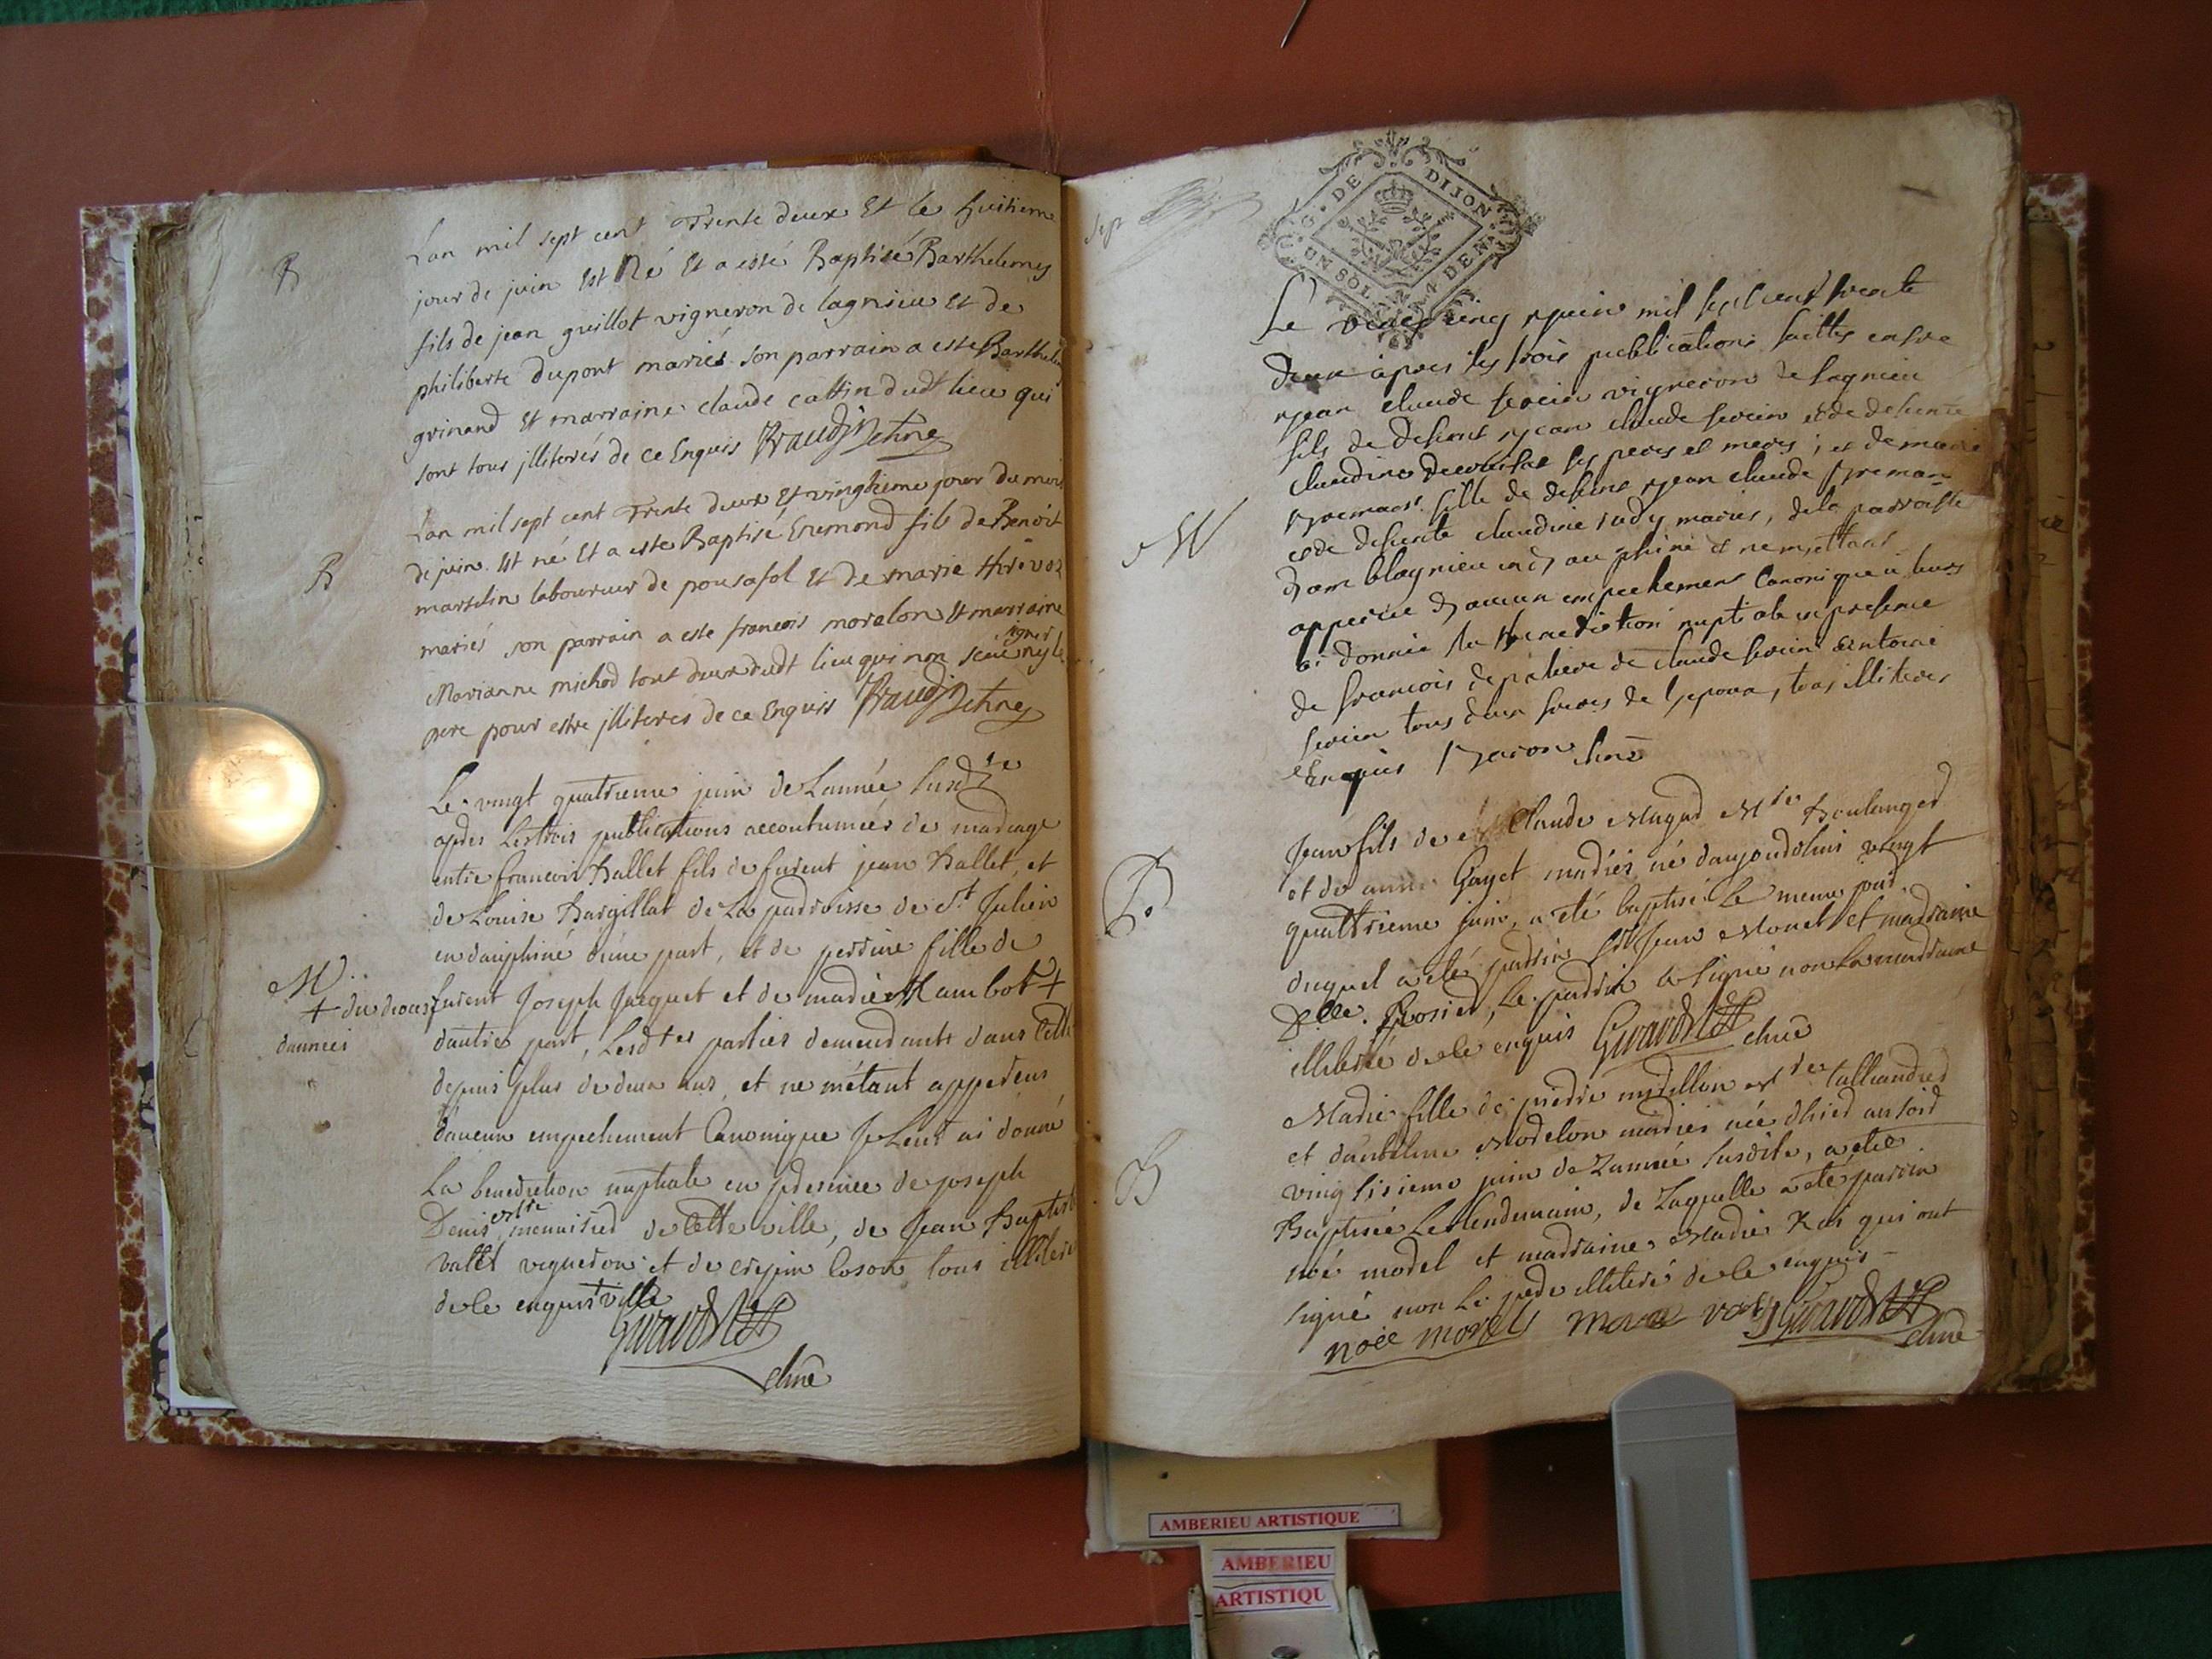 B
Lan mil sept cent Trente deux Et le huitieme
jour de juin Est Né Et a esté Baptisé Barthelemy
fils de jean guillot vigneron de lagnieu Et de
philiberte dupont mariés son parrain a esté Barthele
grinand Et marraine claude cattin dudt lieu qui
sont tous jlliterés de ce Enquis
B
Lan mil sept cent Trente deux Et vingtieme jour du mois
de juin Est né Et a esté Baptisé Enemond fils de Benoit
marselin laboureur de pousafol Et de marie
mariés son parrain a esté francois moralon Et marraine
Marianne michod tout deux dudt lieu qui non sceu signer ny le
pere pour estre jlliterés de ce Enquis
Le vingt quatrieme juin de Lannée susdte
apres Lestrois publications accoutumées de mariage
entre francois Ballet fils de furent jean Ballet, et
de Louise Bargillat de La parroisse de St Julien
en dauphiné d'une part, et de perrine fille de
M
+ du diocese furent Joseph Jacquet et de marie Rambot +
dautre part, Lesdtes parties demeurants dans cette
depuis plus de deux ans, et ne m'étant apperçeus
d'aucun empechement Canonique Je Leur ai donné
La benediction nuptiale en presence de joseph
Denis mtre menuisier de cette ville, de Jean Baptiste
valet vigneron et de crepin Coson tous illiteré
de ce enquis
sept
G. DE DIJON
UN SOL 4 DEN.
Le vingt cinq juin mil sept cent trente
deux apres les trois publications faittes entre
jean claude vigneron de lagnieu
fils de defunt jean claude et de defunte
claudine ses peres et meres ; et de marie
fille de defunt jean claude
M
et de defunte claudine mariés, de la parroisse
d'amblagnieu en dauphiné et ne m'ettant
apperçu d'aucun empechement Canonique je leurs
ai donnée la benediction nuptiale en presence
de francois de claude antoine
tous deux freres de l'epoux, tous illiteres
Enquis
B
Jean fils de Claude Mtre Boulanger
et de anne Gayet mariés né daujourdhui vingt
quattrieme juin, a été baptisé Le meme jour,
duquel a été parrin Sr Jean Monet et marraine
Delle Rosier, Le parrin a signé non La marraine
illiterée de ce enquis
B
Marie fille de pierre Mtre talliandier
et danthelme Morelon mariés née d'hier au soir
vingtsisieme juin de L'année susdite, a été
Baptisée Le lendemain, de Laquelle a été parrin
noé morel et marraine Marie qui ont
signé non Le pere illiteré de ce enquis
noël morel
AMBERIEU ARTISTIQUE
AMBERIEU
ARTISTIQU